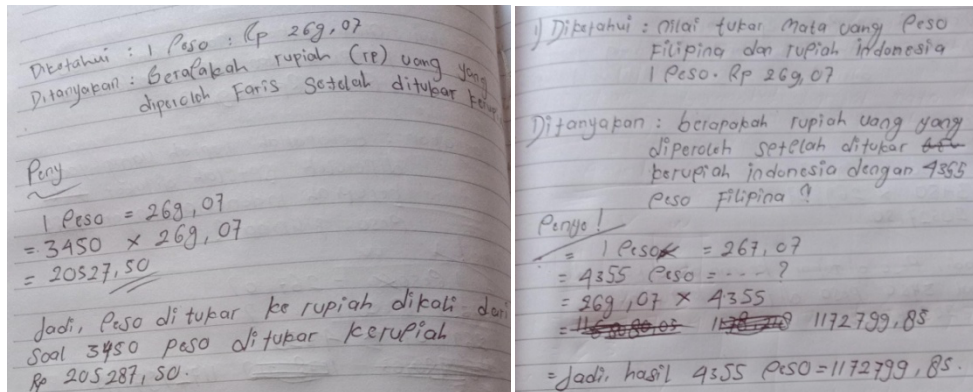 Diketahui : 1 Peso : Rp 269,07
Ditanyakan : Berapakah rupiah (rp) uang yang
diperoleh Faris Setelah ditukar
Peny
1 Peso = 269,07
= 3450 x 269,07
= 20527,50
Jadi, Peso di tukar ke rupiah dikali dari
Soal 3450 peso di tukar kerupiah
Rp 205287,50.
1) Diketahui : nilai tukar Mata uang Peso
Filipina dan rupiah indonesia
1 Peso. Rp 269,07
Ditanyakan : berapakah rupiah uang yang
diperoleh setelah ditukar
kerupiah indonesia dengan 4355
peso Filipina ?
Penye !
= 1 Peso = 267,07
= 4355 Peso = .... ?
= 269,07 x 4355
= 1172799,85
= Jadi, hasil 4355 peso = 1172799,85.